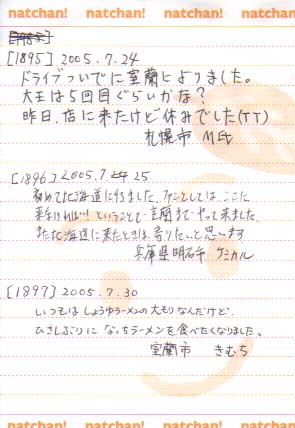 natchan! natchan! natchan! natchan!
[1895] 2005.7.24
ドライブついでに室蘭によりました。
大王は5回目ぐらいかな?
昨日、店に来たけど休みでした(TT)
札幌市 M氏
[1896] 2005.7.24 25
初めて北海道に行きました。ファンとしては、ここに
来なければ!ということで室蘭までやって来ました。
また北海道に来たときは、寄りたいと思います
兵庫県明石市 ケミカル
[1897] 2005.7.30
いつもはしょうゆラーメンの大もりなんだけど、
ひさしぶりに なっちラーメンを食べたくなりました。
室蘭市 きむち
natchan! natchan! natchan! natchan!